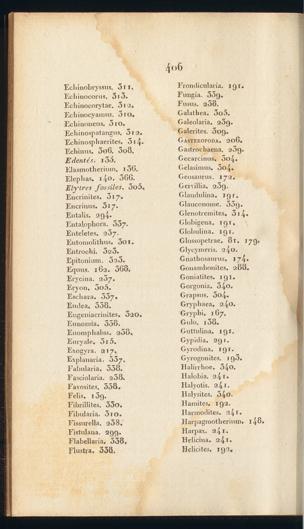 406
Echinobryssus. 311.
Echinocorus. 313.
Echinocorytae. 312.
Echinocyamus. 310.
Echinoneus. 310.
Echinospatangus. 312.
Echinosphaerites. 314.
Echinus. 306. 308.
Edentés. 135.
Elasmotherium. 136.
Elephas. 140. 366.
Elytres fossiles. 305.
Encrinites. 317.
Encrinus. 317.
Entalis. 294.
Entalophora. 337.
Enteletes. 237.
Entomolithus. 301.
Entrochi. 323.
Epitonium. 323.
Equus. 162. 368.
Erycina. 237.
Eryon. 305.
Eschara. 337.
Eudea. 338.
Eugeniacrinites. 320.
Eunomia. 338.
Euomphalus. 238.
Euryale. 315.
Exogyra. 217.
Explanaria. 337.
Fabularia. 338.
Fasciolaria. 238.
Favosites. 338.
Felis. 139.
Fibrillites. 330.
Fibularia. 310.
Fissurella. 238.
Fistulana. 299.
Flabellaria. 338.
Flustra. 338.
Frondicularia. 191.
Fungia. 339.
Fusus. 238.
Galathea. 305.
Galeolaria. 239.
Galerites. 309.
Gasteropoda. 206.
Gastrochaena. 239.
Gecarcinus. 304.
Gelasimus. 304.
Geosaurus. 172.
Gervillia. 239.
Glandulina. 191.
Glauconome. 339.
Glenotremites. 314.
Globigena. 191.
Globulina. 191.
Glossopetrae. 81. 179.
Glycymeris. 240.
Gnathosaurus. 174.
Gonambonites. 288.
Goniatites. 191.
Gorgonia. 340.
Grapsus. 304.
Gryphaea. 240.
Gryphi. 167.
Gulo. 138.
Guttulina. 191.
Gypidia. 291.
Gyrodina. 191.
Gyrogonites. 193.
Halirrhoe. 340.
Halobia. 241.
Halyotis. 241.
Halysites. 340.
Hamites. 192.
Harmodites. 241.
Harpagmotherium. 148.
Harpax. 241.
Helicina. 241.
Helicites. 192.